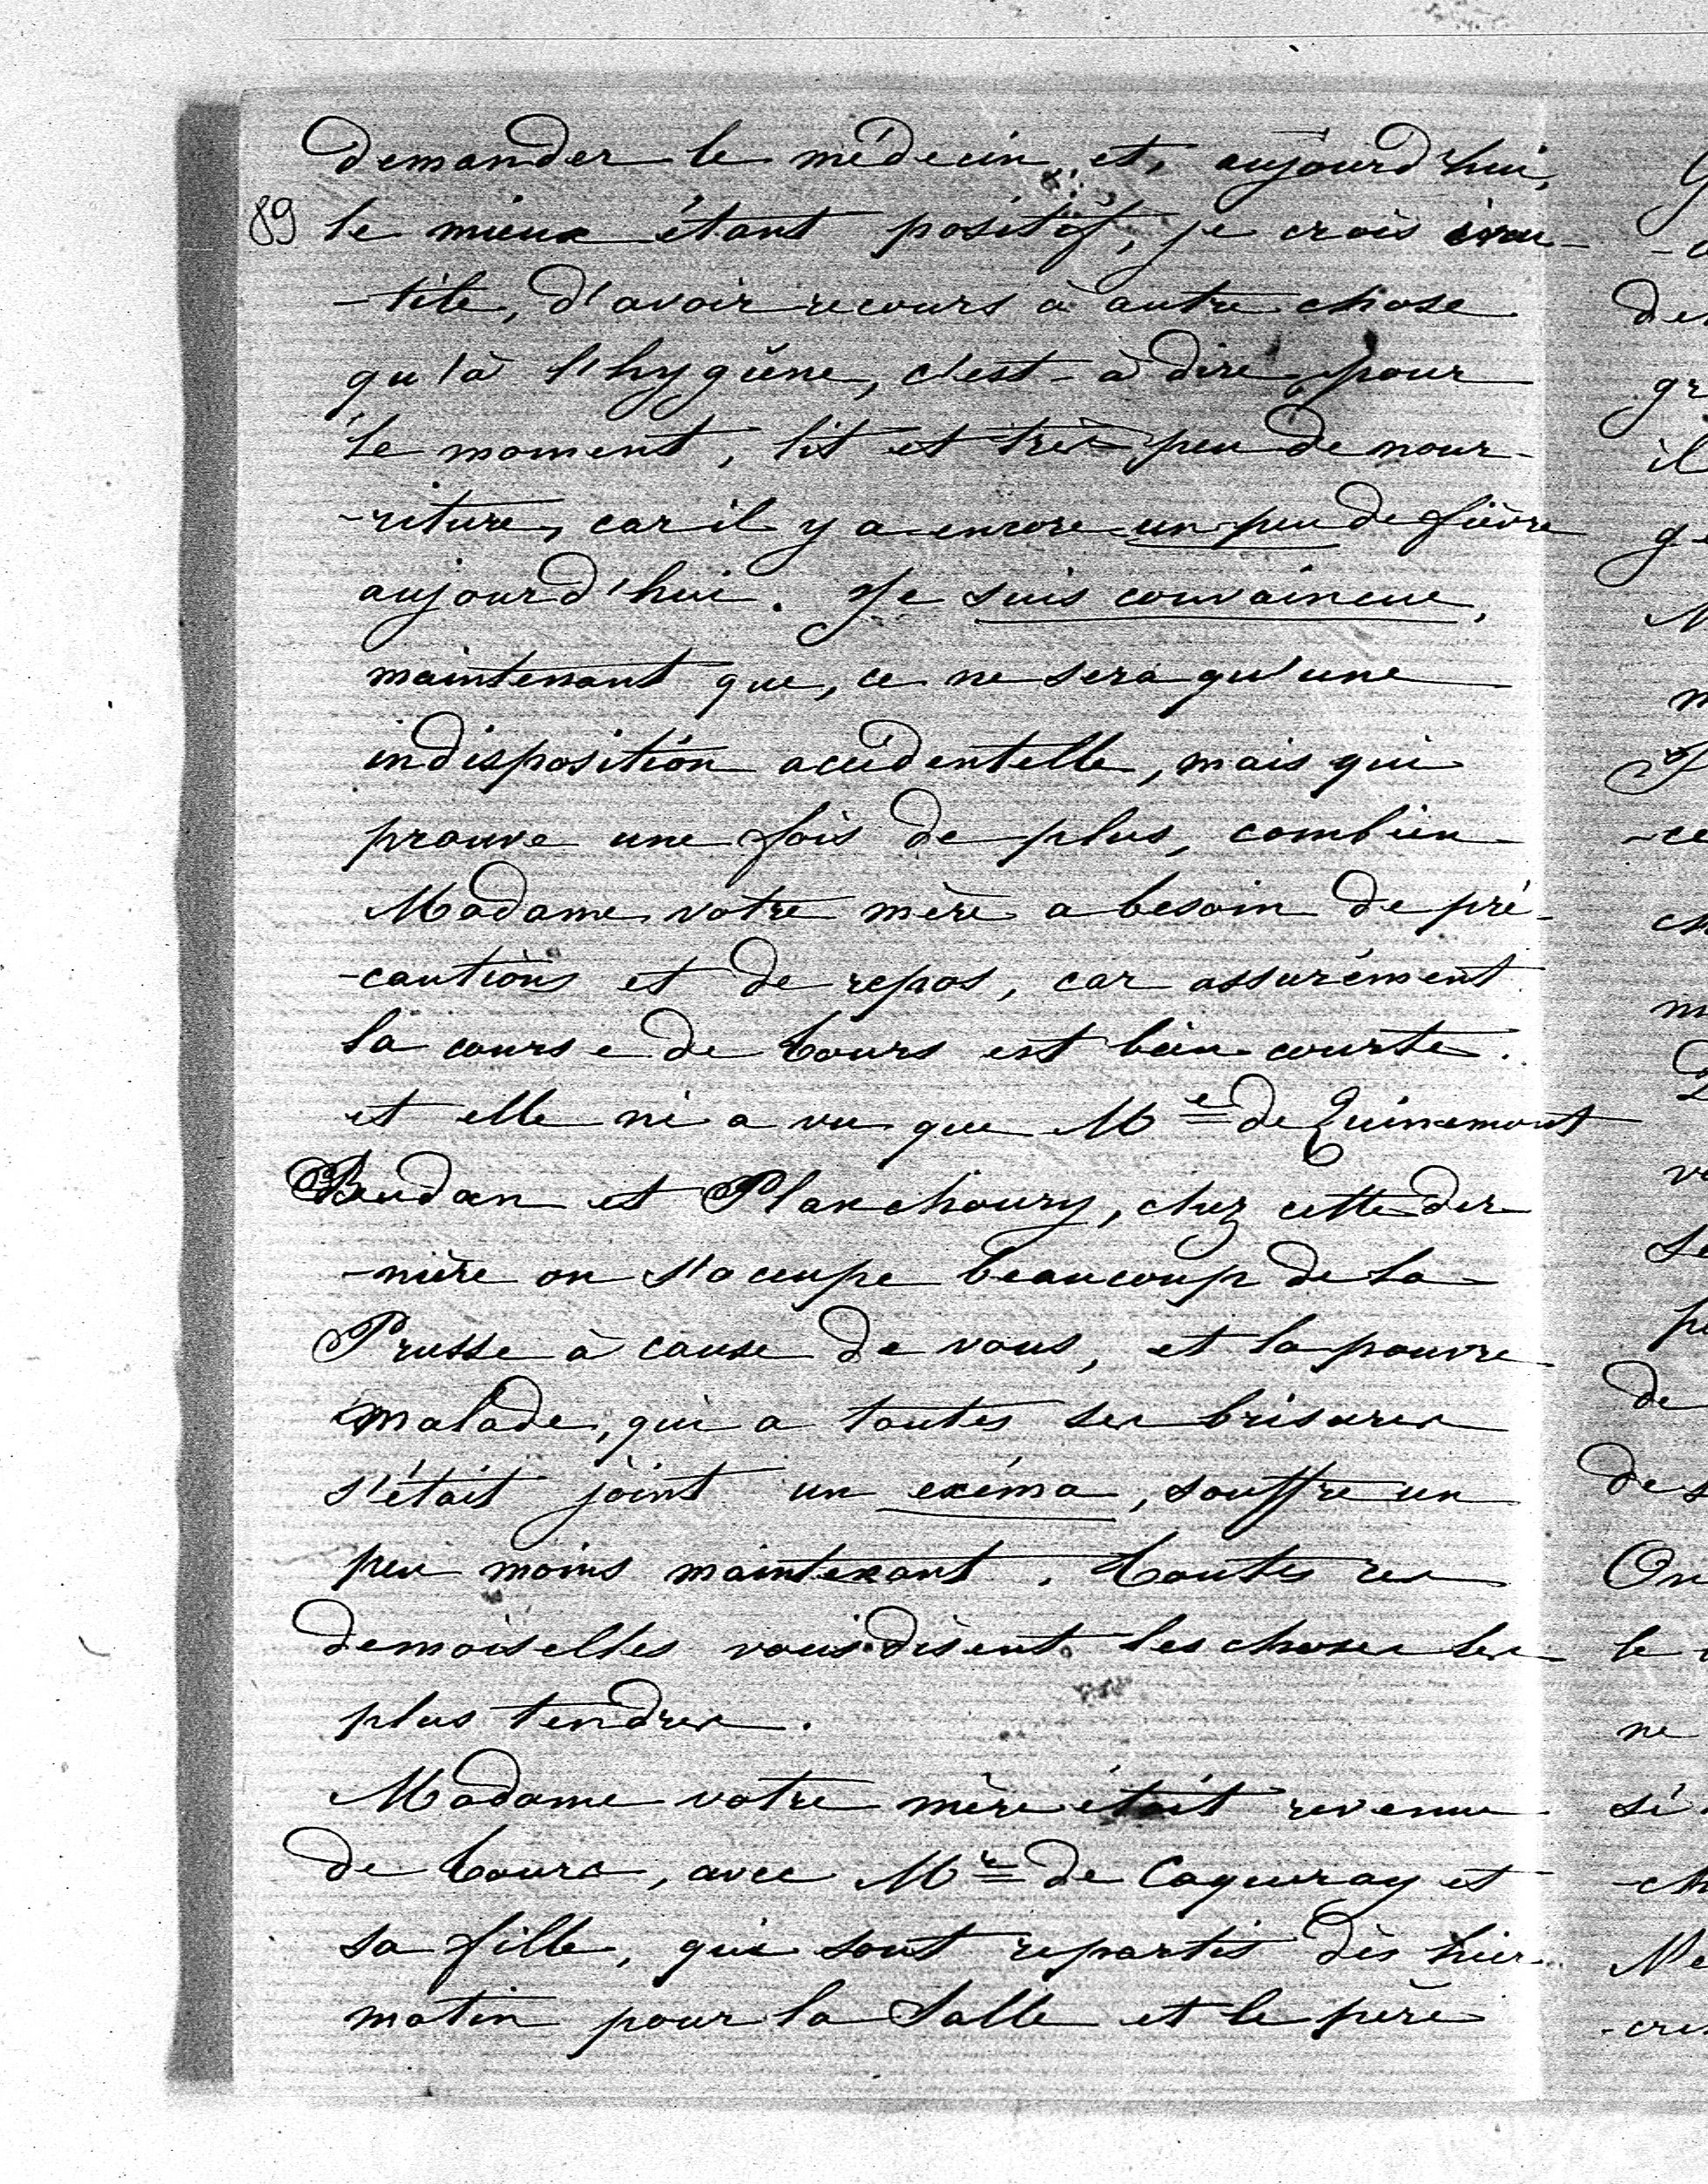 demander le médecin et, aujourd'hui,
89 le mieux étant positif, je crois inu-
-tile, d'avoir recours à autre chose
qu'à l'hygiène, c'est-à dire pour
le moment, lit et très peu de nour-
-riture, car il y a encore un peu de fièvre
aujourd'hui. Je suis convaincue,
maintenant que, ce ne sera qu'une
indisposition accidentelle, mais qui
prouve une fois de plus, combien
Madame votre mère a besoin de pré-
-cautions et de repos, car assurément
la course de Tours est bien courte.
et elle ni a vu que Me de Quinemont
Beudan et Planchoury, chez cette der
-nière on s'occupe beaucoup de la
Prusse à cause de vous, et la pauvre
malade, qui a toutes ses brisures
s'était joint un exéma, souffre un
peu moins maintenant. Toutes ces
demoiselles vous disent les choses les
plus tendres.
Madame votre mère était revenue
de Tours, avec Mr de Caqueray et
sa fille, qui sont repartis dès hier
matin pour la Salle et le père